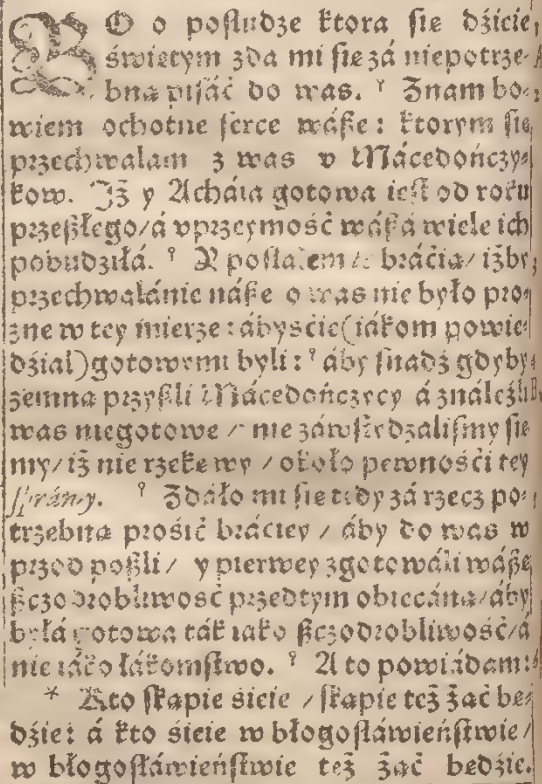 BO o posłudze ktora się dzieie
świętym zda mi się zá niepotrze-
bną pisáć do was. Znam bo-
wiem ochotne serce wáße: ktorym się
przechwalam z was v Mácedończy-
kow. Iż y Acháia gotowa iest od roku
przeßłego/á vprzeymość wáßá wiele ich
pobudziłá. A posłałem bráćia/ iżby
przechwalánie náße o was nie było pro-
żne w tey mierze: ábyśćie(iákom powie-
dział)gotowymi byli: áby snadź gdyby
zemną przyßli Mácedończycy á ználeźli
was niegotowe / nie záwstydzaliśmy się
my/iż nie rzekę wy / około pewnośći tey
sprawy. Zdáło mi się tedy zá rzecz po-
trzebną prośić bráciey / áby do was w
przod poßli / y pierwey zgotowáli wáßę
ßczodrobliwość przedtym obiecáną/áby
byłá gotowa ták iáko ßczodrobliwość/á
nie iáko łákomstwo. A to powiádam:
* Kto skąpie śieie / skąpie też żąć bę-
dźie: á kto śieie w błogosłáwieństwie/
w błogosłáwieństwie też żąć będźie.